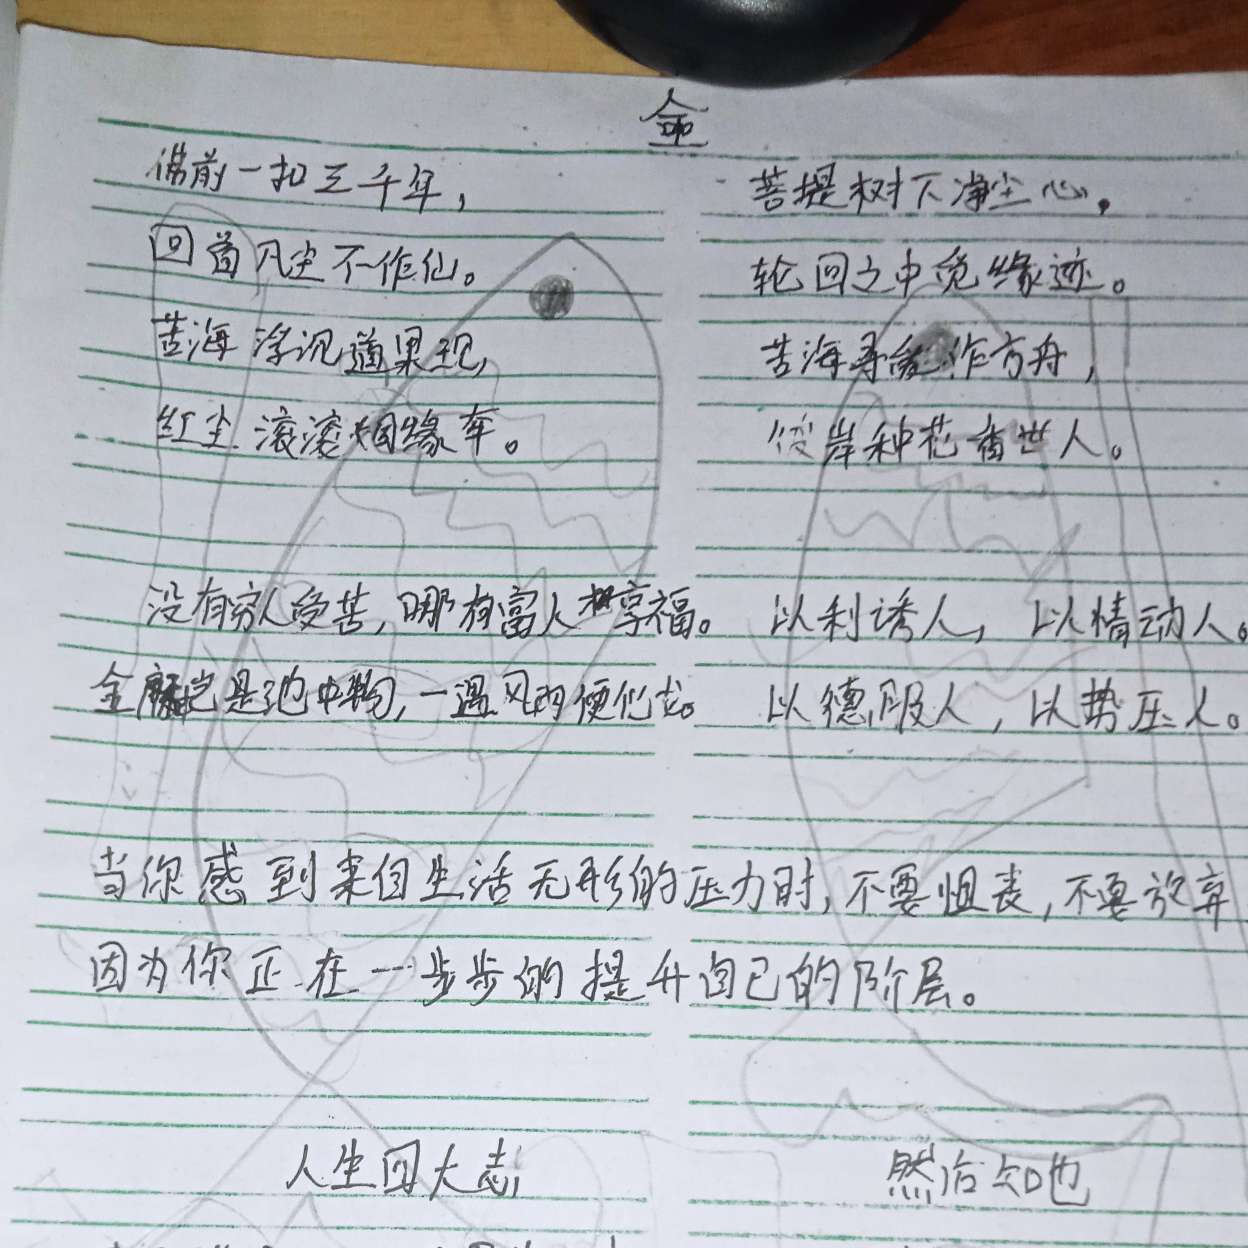 命
佛前一扣三千年，
回首凡尘不作仙。
苦海浮沉道果现，
红尘滚滚烟缘牵。
菩提树下净尘心，
轮回之中觅缘迹。
苦海寻舟作方舟，
彼岸种花渡世人。
没有穷人受苦，哪有富人享福。
金鳞岂是池中物，一遇风雨便化龙。
以利诱人，以情动人。
以德服人，以势压人。
当你感到来自生活无形的压力时，不要怚丧，不要放弃
因为你正在一步步的提升自己的阶层。
人生因大志
然后知也